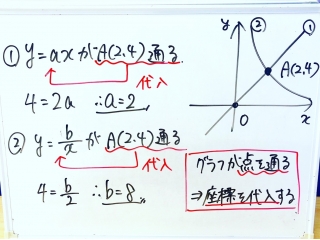 ① y=ax が A(2,4) 通る
代入
4=2a ∴a=2
② y=b/x が A(2,4) 通る
代入
4=b/2 ∴b=8
y
②
①
A(2,4)
O
x
グラフが点を通る
⇒座標を代入する